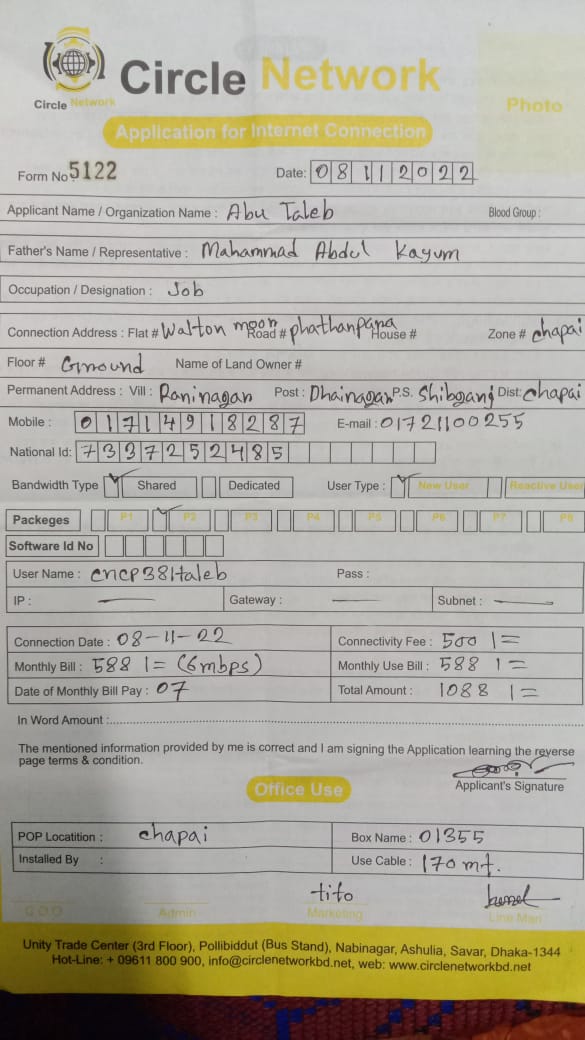 Circle Network
Circle Network
Photo
Application for Internet Connection
Form No 5122 Date: 08112022
Applicant Name / Organization Name : Abu Taleb Blood Group :
Father's Name / Representative : Mahammad Abdul Kayum
Occupation / Designation : Job
Connection Address : Flat # Walton moor Road # phathanpara House # Zone # chapai
Floor # Ground Name of Land Owner #
Permanent Address : Vill : Raninagar Post : Dhainagar P.S. Shibganj Dist: chapai
Mobile : 01714918287 E-mail : 01721100255
National Id: 7337252485
Bandwidth Type Shared Dedicated User Type : New User Reactive User
Packeges P1 P2 P3 P4 P5 P6 P7 P8
Software Id No
User Name : cncp381taleb Pass :
IP : — Gateway : — Subnet : —
Connection Date : 08-11-22 Connectivity Fee : 500 /=
Monthly Bill : 588 /= (6mbps) Monthly Use Bill : 588 /=
Date of Monthly Bill Pay : 07 Total Amount : 1088 /=
In Word Amount :
The mentioned information provided by me is correct and I am signing the Application learning the reverse
page terms & condition.
Applicant's Signature
Office Use
POP Locatition : chapai Box Name : 01355
Installed By : Use Cable : 170 mt.
tito
C.O.O Admin Marketing Line Man
Unity Trade Center (3rd Floor), Pollibiddut (Bus Stand), Nabinagar, Ashulia, Savar, Dhaka-1344
Hot-Line: + 09611 800 900, info@circlenetworkbd.net, web: www.circlenetworkbd.net